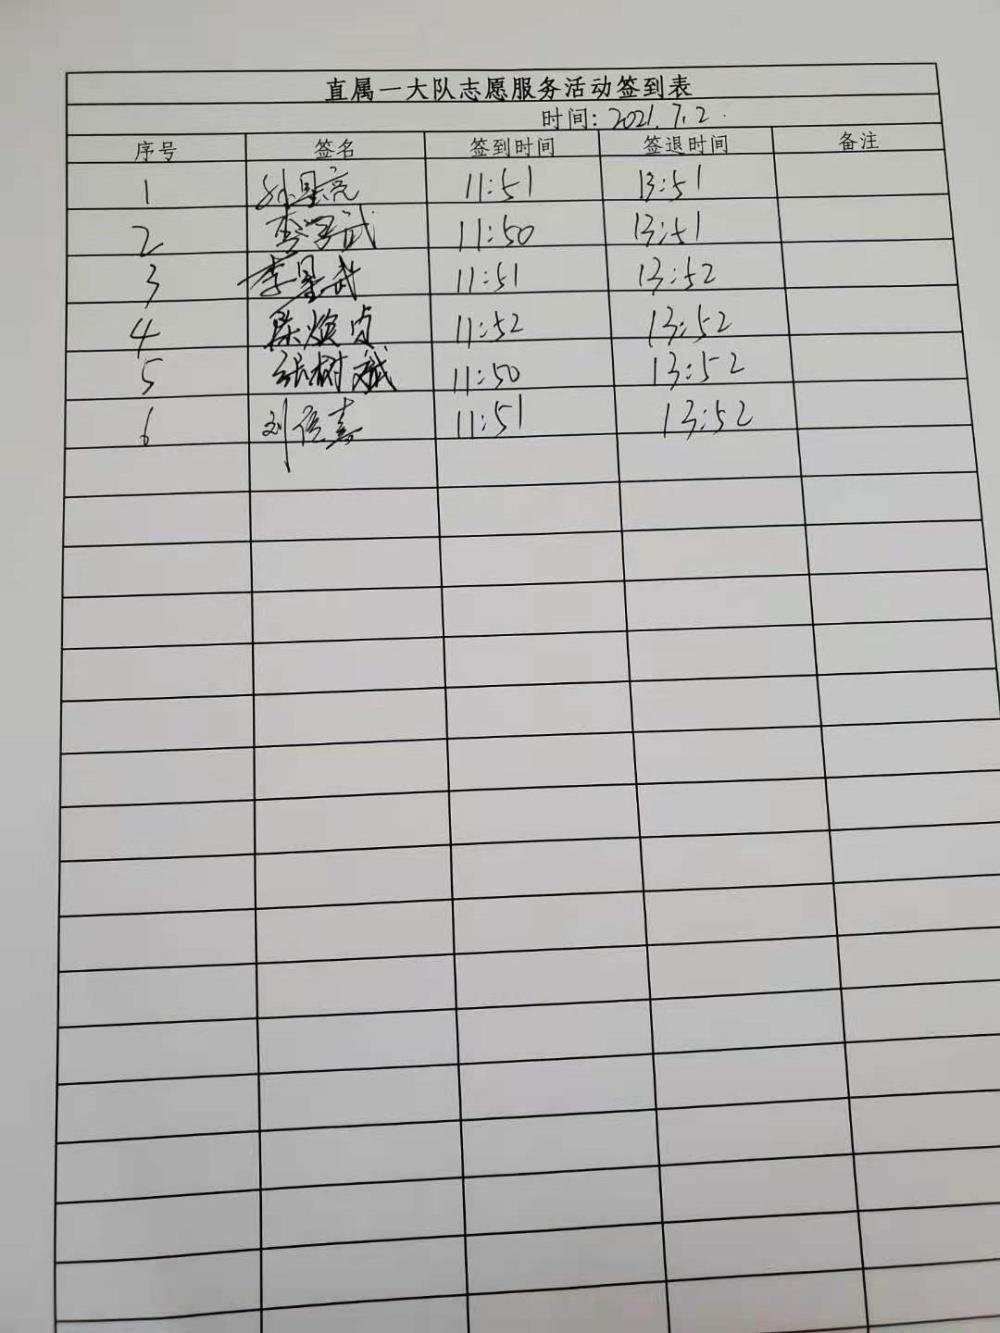 直属一大队志愿服务活动签到表
时间: 2021.7.2.
序号 签名 签到时间 签退时间 备注
1 孙星亮 11:51 13:51
2 李学武 11:50 13:51
3 李星武 11:51 13:52
4 梁焕 11:52 13:52
5 张树斌 11:50 13:52
6 刘 11:51 13:52